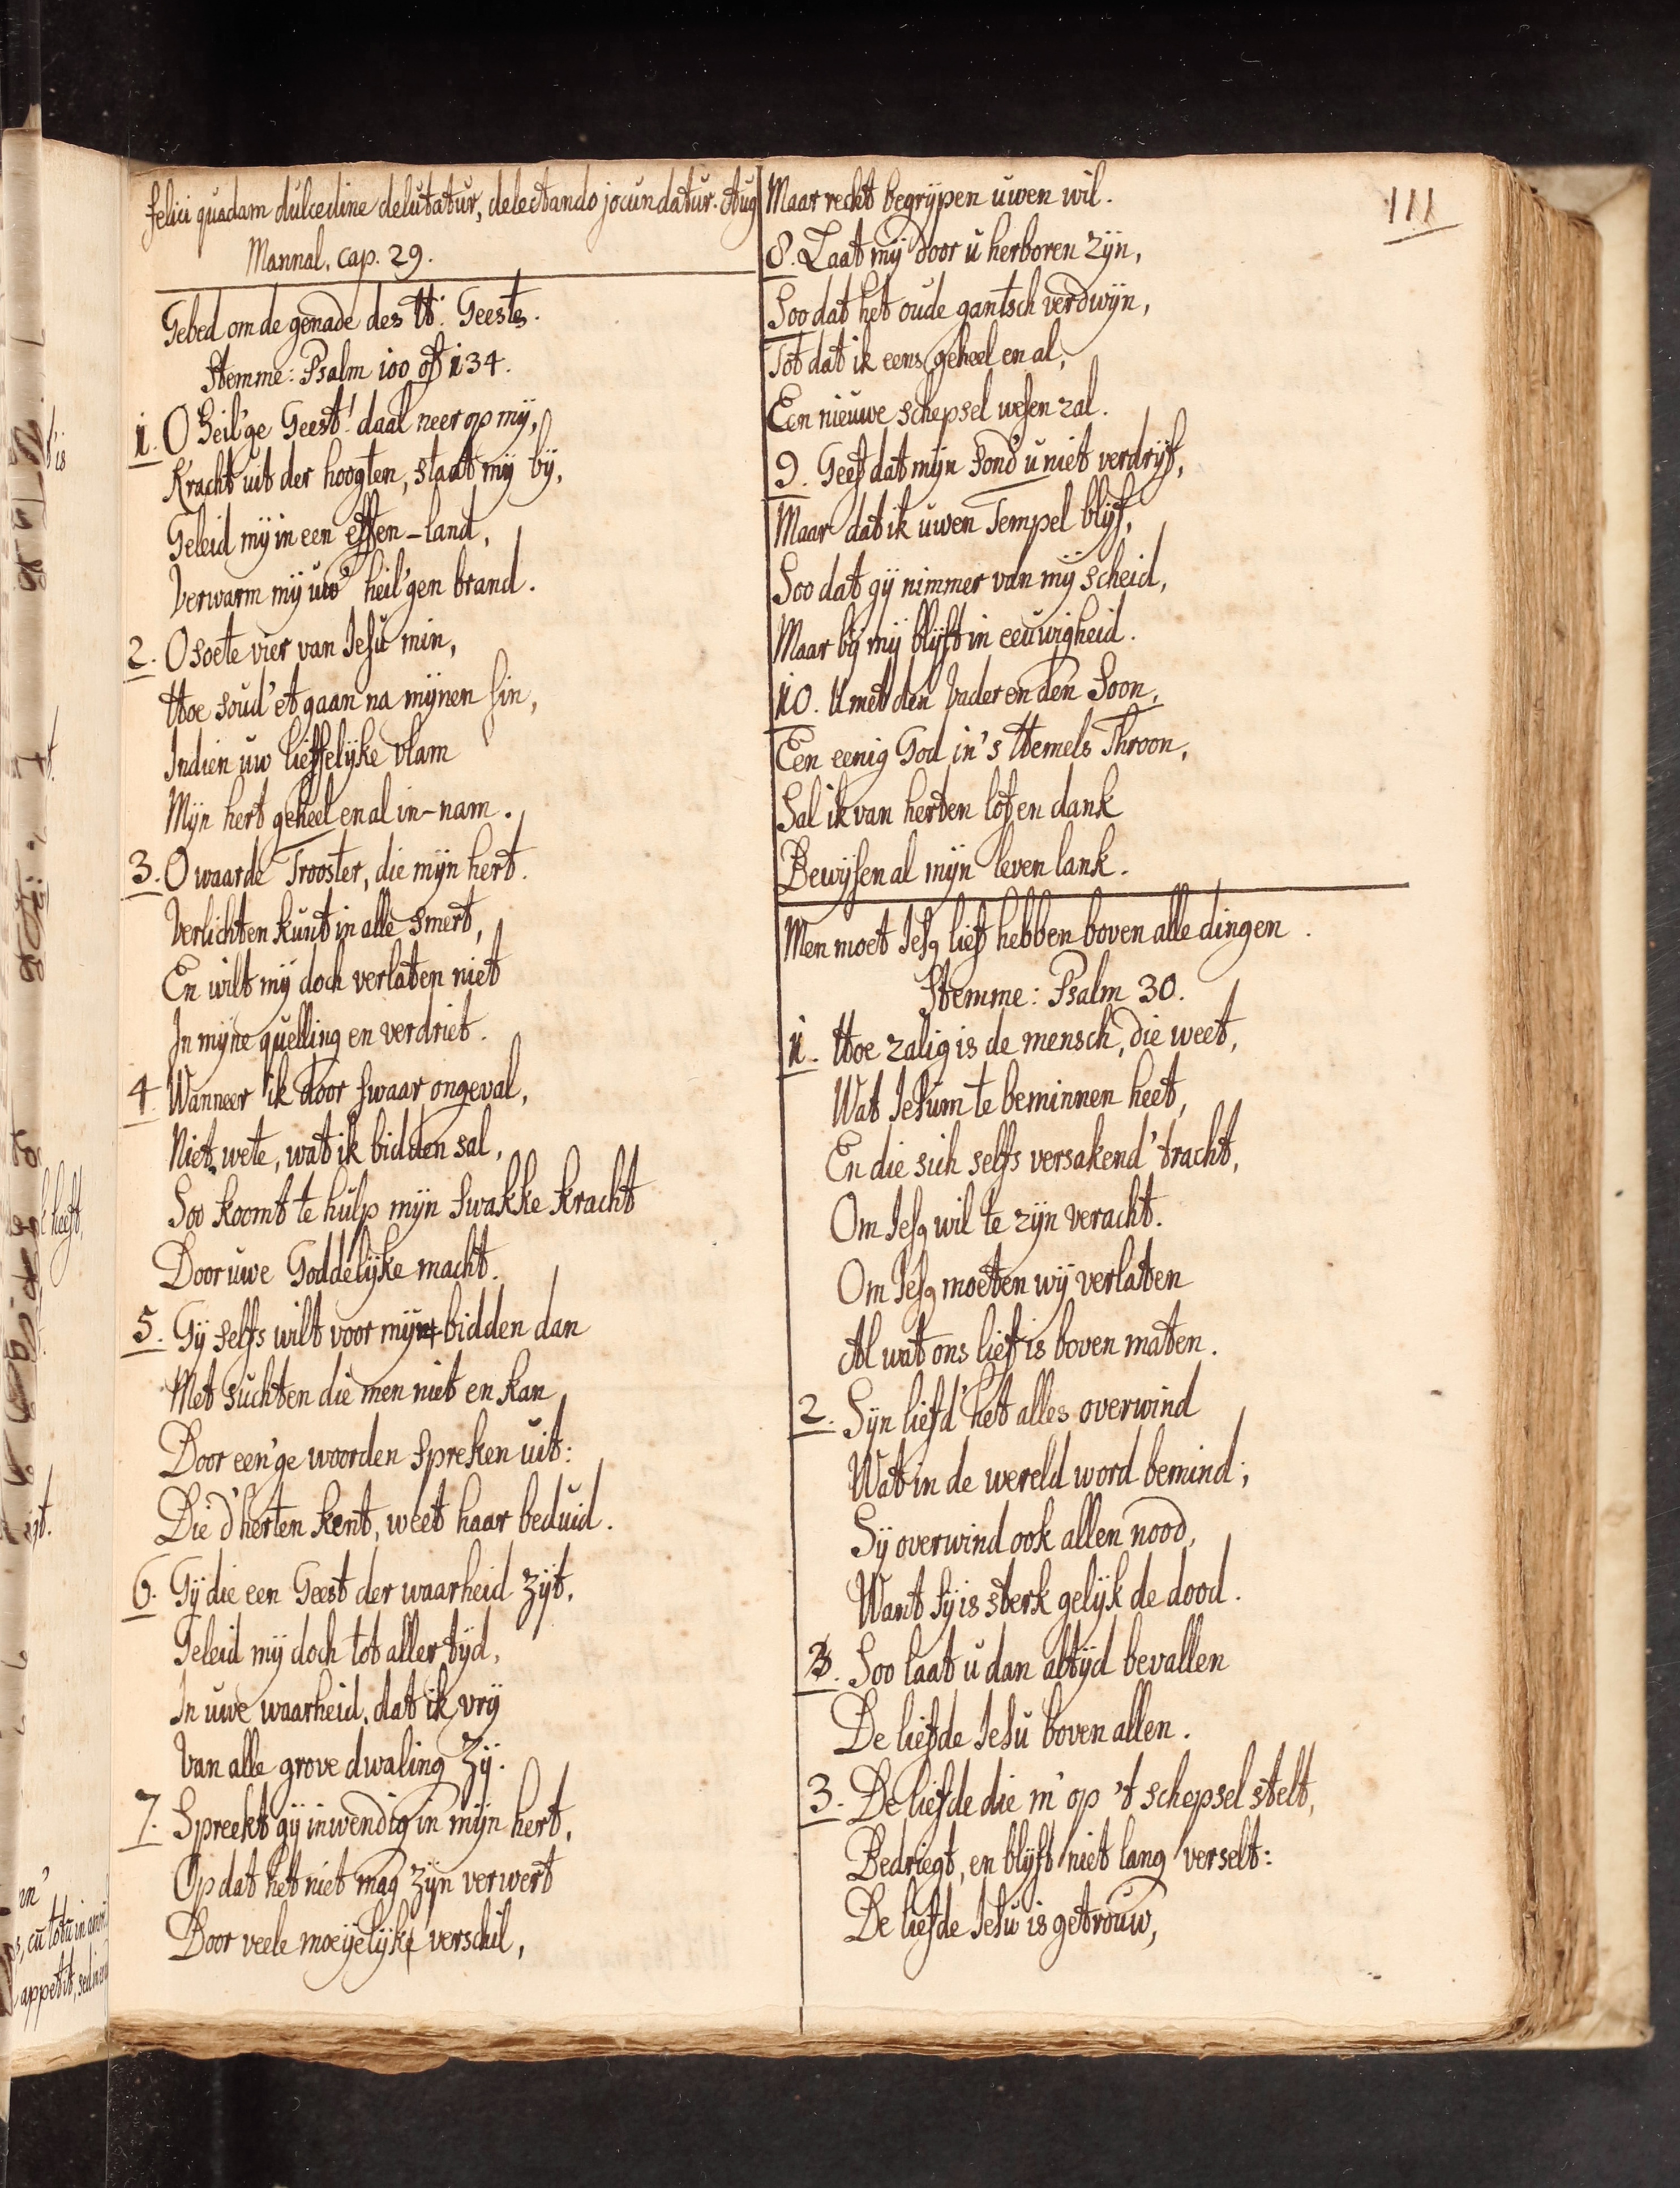 felici quadam dulcedine delutatur, delectando jocundatur. Aug
Mannal. cap. 29.
Gebed om de genade des H. Geests.
Stemme: Psalm 100 of 134.
1. O Heil'ge Geest! daal neer op mÿ,
Kracht uit der hoogten, staat mÿ bÿ,
Geleid mÿ in een effen-land,
Verwarm mÿ uw' heil'gen brand.
2. O soete vier van Jesu min,
Hoe soud' et gaan na mÿnen sin,
Indien uw lieffelÿke vlam
Mÿn hert geheel en al in-nam.
3. O waarde Trooster, die mÿn hert.
Verlichten kunt in alle smert,
En wilt mÿ doch verlaten niet
In mÿne quelling en verdriet.
4. Wanneer ik door swaar ongeval,
Niet wete, wat ik bidden sal,
Soo koomt te hulp mÿn swakke kracht
Door uwe Goddelÿke macht.
5. Gÿ selfs wilt voor mÿn bidden dan
Met suchten die men niet en kan
Door een'ge woorden spreken uit:
Die d' herten kent, weet haar beduid.
6. Gÿ die een Geest der waarheid zÿt,
Geleid mÿ doch tot aller tÿd,
In uwe waarheid, dat ik vrÿ
Van alle grove dwaling zÿ.
7. Spreekt gÿ inwendig in mÿn hert,
Op dat het niet mag zÿn verwert
Door veele moeÿelÿke verschil,
Maar recht begrÿpen uwen wil.
8. Laat mÿ door u herboren zÿn,
Soo dat het oude gantsch verdwÿn,
Tot dat ik eens geheel en al,
Een nieuwe schepsel wesen zal.
9. Geef dat mÿn sond' u niet verdrÿf,
Maar dat ik uwen Tempel blÿf,
Soo dat gÿ nimmer van mÿ scheid,
Maar bÿ mÿ blÿft in eeuwigheid.
10. U met den Vader en den Soon,
Een eenig God in 's Hemels Throon,
Sal ik van herten lof en dank
Bewÿsen al mÿn leven lank.
Men moet Jesꝯ lief hebben boven alle dingen.
Stemme: Psalm 30.
1. Hoe zalig is de mensch, die weet,
Wat Jesum te beminnen heet,
En die sich selfs versakend' tracht,
Om Jesꝯ wil te zÿn veracht.
Om Jesꝯ moeten wÿ verlaten
Al wat ons lief is boven maten.
2. Sÿn liefd' het alles overwind
Wat in de wereld word bemind;
Sÿ overwind ook allen nood,
Want sÿ is sterk gelÿk de dood.
3. Soo laat u dan altÿd bevallen
De liefde Jesu boven allen.
3. De liefde die m' op 't schepsel stelt,
Bedriegt, en blÿft niet lang verselt:
De liefde Jesu is getrouw,
111